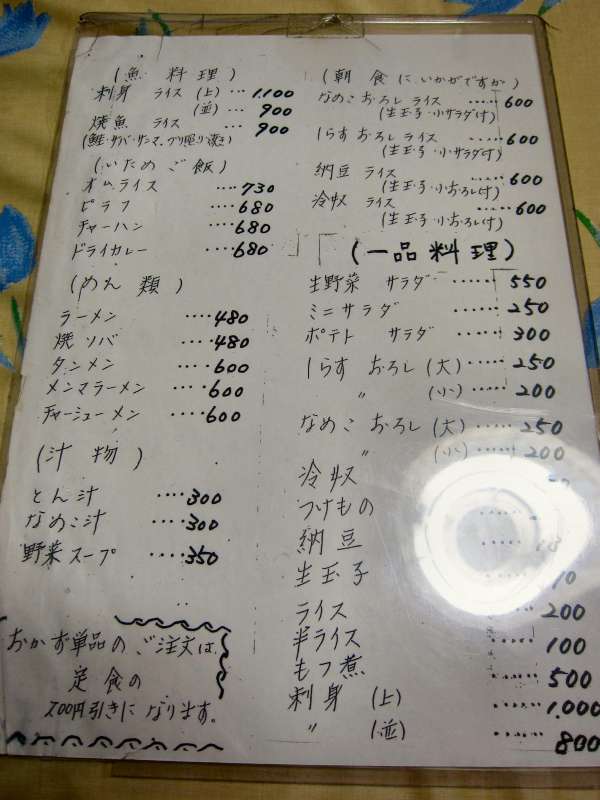 (魚料理)
刺身 ライス (上) … 1,100
(並) … 900
焼魚 ライス … 900
(鮭・サバ・サンマ、ブリ照り焼き)
(いためご飯)
オムライス … 730
ピラフ … 680
チャーハン … 680
ドライカレー … 680
(めん類)
ラーメン … 480
焼ソバ … 480
タンメン … 600
メンマラーメン … 600
チャーシューメン … 600
(汁物)
とん汁 … 300
なめこ汁 … 300
野菜スープ … 350
おかず単品のご注文は
定食の
200円引きになります。
(朝食にいかがですか)
なめこおろしライス … 600
(生玉子・小サラダ付)
しらすおろしライス … 600
(生玉子・小サラダ付)
納豆 ライス … 600
(生玉子・小おろし付)
冷奴 ライス … 600
(生玉子・小おろし付)
(一品料理)
生野菜 サラダ … 550
ミニサラダ … 250
ポテト サラダ … 300
しらす おろし (大) … 250
〃 (小) … 200
なめこ おろし (大) … 250
〃 (小) … 200
冷奴
つけもの
納豆
生玉子
ライス … 200
半ライス … 100
もつ煮 … 500
刺身 (上) … 1,000
〃 (並) … 800